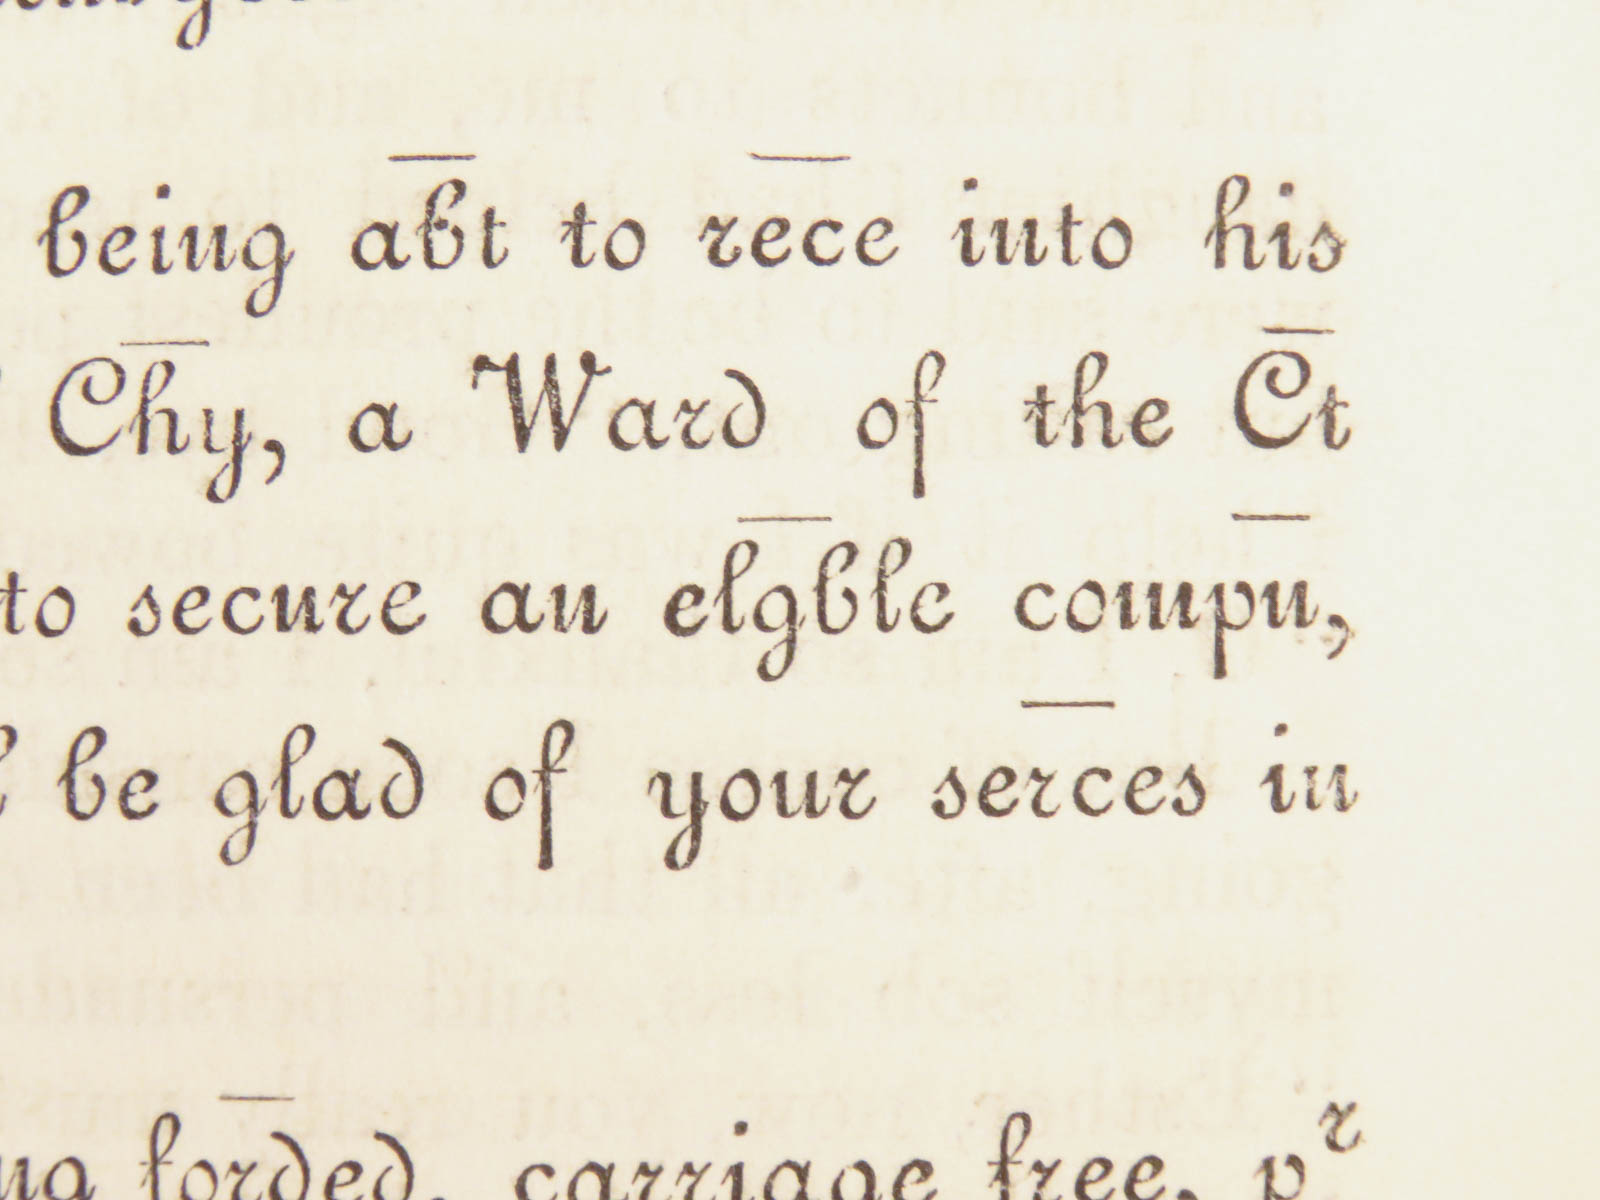 being ab̅t to rec̅e into his
Ch̅y, a Ward of the C̅t
to secure an elg̅ble comp̅n,
be glad of your serc̅es in
for̅ded, carriage free, pʳ